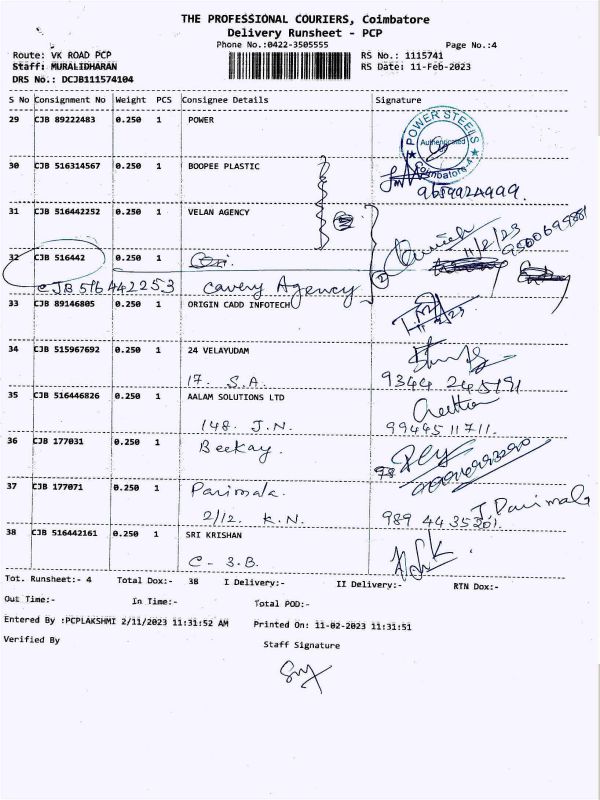 THE PROFESSIONAL COURIERS, Coimbatore
Delivery Runsheet - PCP
Phone No.:0422-3505555
Page No.:4
Route: VK ROAD PCP
RS No.: 1115741
Staff: MURALIDHARAN
RS Date: 11-Feb-2023
DRS No.: DCJB111574104
S No Consignment No Weight PCS Consignee Details Signature
29 CJB 89222483 0.250 1 POWER
POWER STEELS
Authenticated
Coimbatore-4
30 CJB 516314567 0.250 1 BOOPEE PLASTIC
9659924999.
31 CJB 516442252 0.250 1 VELAN AGENCY
11/2/23
32 CJB 516442 0.250 1
CJB 516442253 Cavery Agency
33 CJB 89146805 0.250 1 ORIGIN CADD INFOTECH
34 CJB 515967692 0.250 1 24 VELAYUDAM
17. S.A.
9344 245191
35 CJB 516446826 0.250 1 AALAM SOLUTIONS LTD
148. J.N.
99445 11711.
36 CJB 177031 0.250 1 Beekay.
37 CJB 177071 0.250 1 Parimala.
J. Parimala
2/12. K.N.
989 44 35301.
38 CJB 516442161 0.250 1 SRI KRISHAN
C - 3.B.
Tot. Runsheet:- 4 Total Dox:- 38 I Delivery:- II Delivery:- RTN Dox:-
Out Time:- In Time:- Total POD:-
Entered By :PCPLAKSHMI 2/11/2023 11:31:52 AM Printed On: 11-02-2023 11:31:51
Verified By Staff Signature